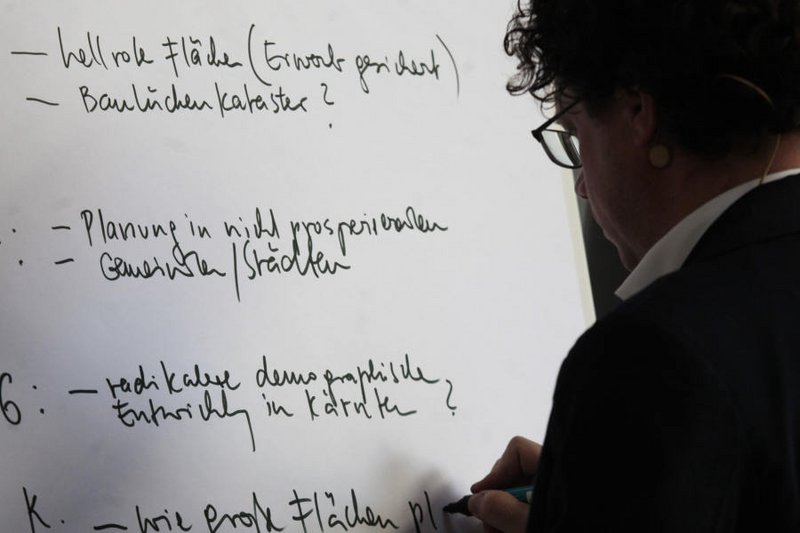 — hellrote Flächen (Erwerb gesichert)
— Baulückenkataster?
: — Planung in nicht prosperierenden
: — Gemeinden/Städten
G: — radikalere demographische
Entwicklg in Kärnten?
K. — wie große Flächen pl